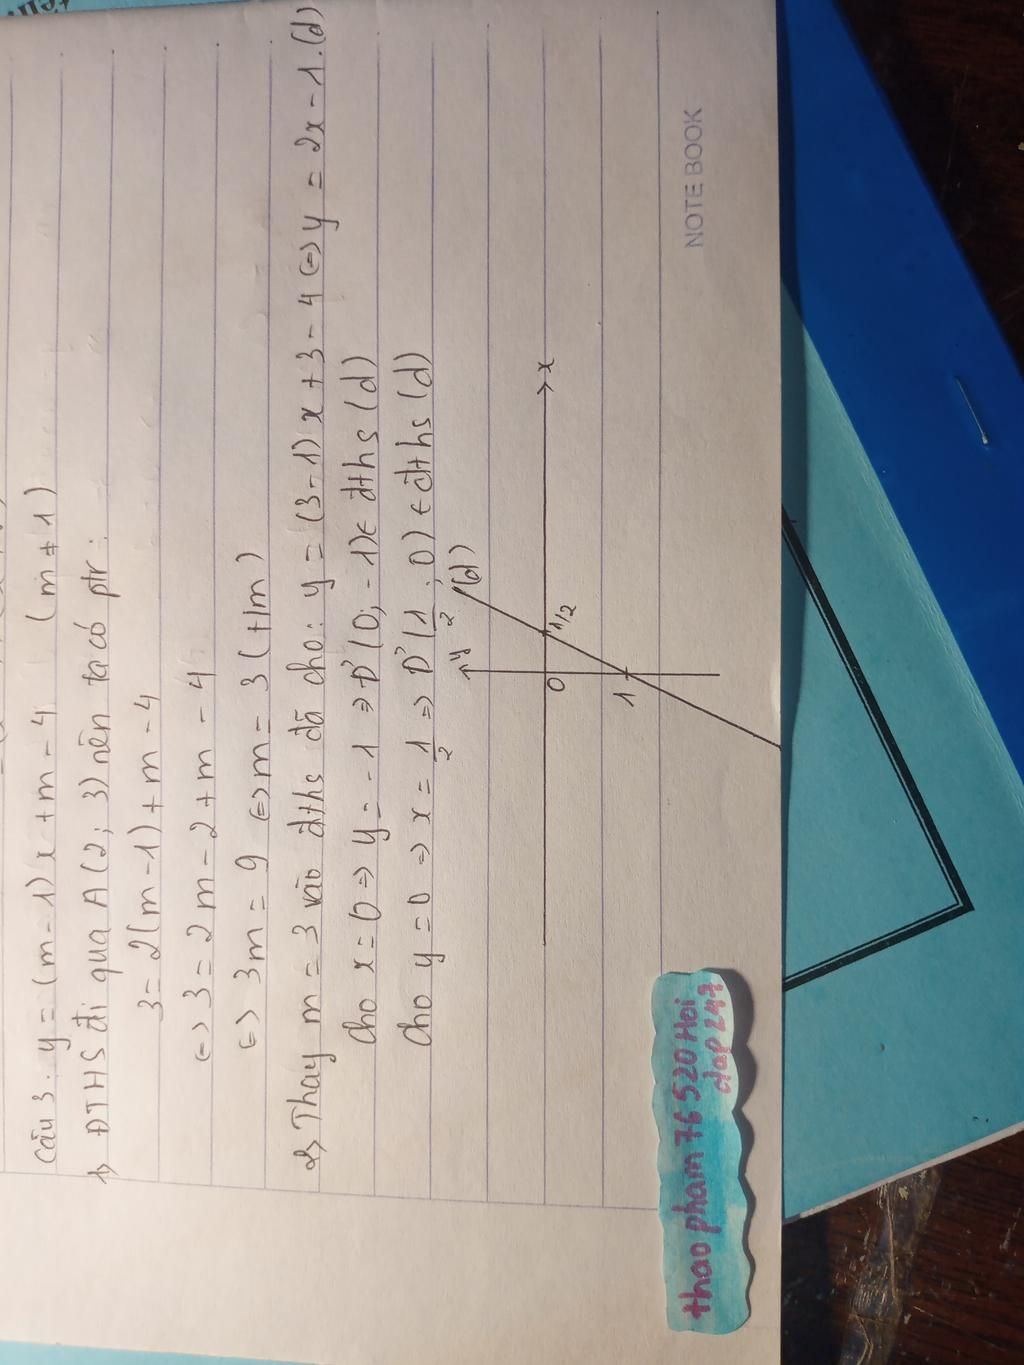 Câu 3: y = (m - 1) x + m - 4 (m ≠ 1)
1, ĐTHS đi qua A (2; 3) nên ta có ptr:
3 = 2(m - 1) + m - 4
<=> 3 = 2m - 2 + m - 4
<=> 3m = 9 <=> m = 3 (+lm)
2, Thay m = 3 vào đths đã cho: y = (3 - 1) x + 3 - 4 <=> y = 2x - 1. (d)
Cho x = 0 => y = -1 => D' (0; -1) ∈ đths (d)
Cho y = 0 => x = 1/2 => D' (1/2; 0) ∈ đths (d)
y
(d)
x
0
1/2
1
NOTE BOOK
thao pham 76 520 Hoi
dap 247